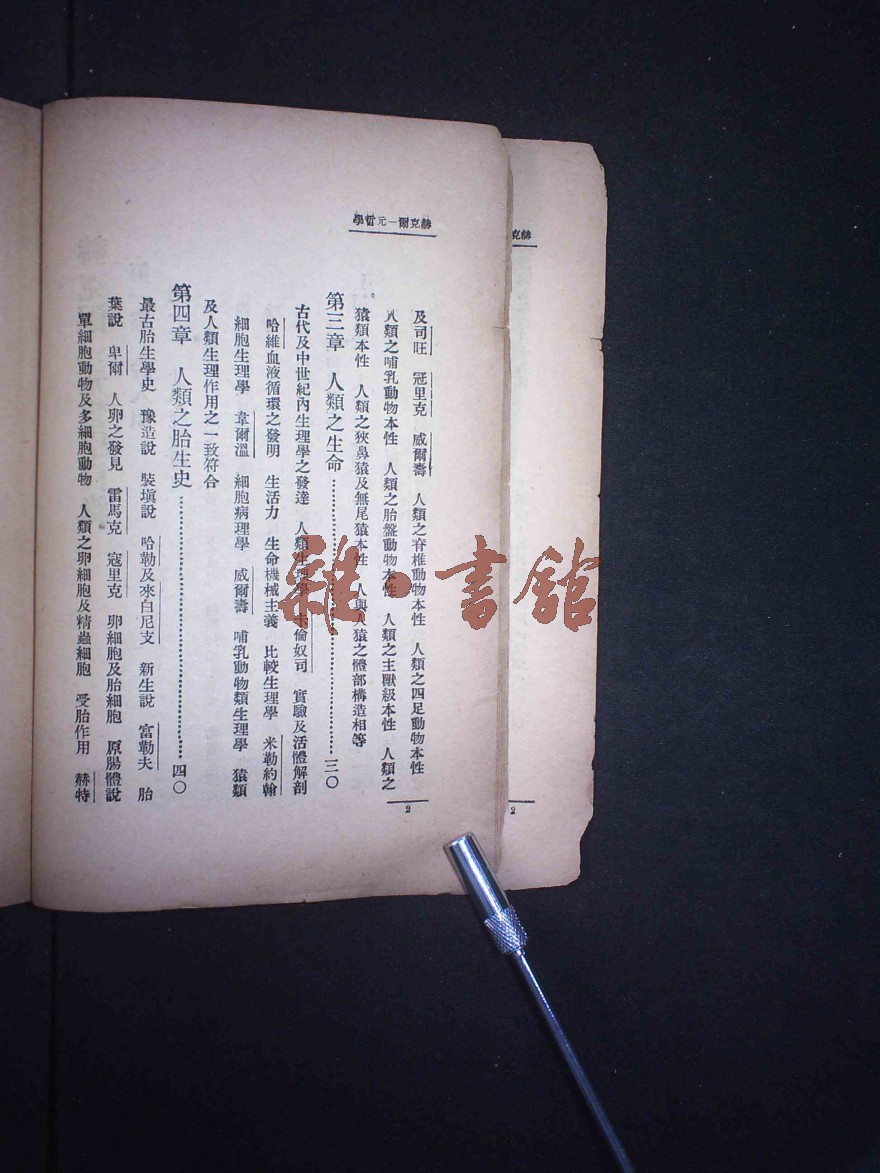 赫克爾一元哲學
及司旺　冠里克　威爾壽　人類之脊椎動物本性　人類之四足動物本性
人類之哺乳動物本性　人類之胎盤動物本性　人類之主獸級本性　人類之
猿類本性　人類之狹鼻猿及無尾猿本性　人與人猿之體部構造相等
第三章　人類之生命…………三〇
古代及中世紀內生理學之發達　人類生理學　卡倫奴司　實驗及活體解剖
哈維血液循環之發明　生活力　生命機械主義　比較生理學　米勒約翰
細胞生理學　韋爾溫　細胞病理學　威爾壽　哺乳動物類生理學　猿類
及人類生理作用之一致符合
第四章　人類之胎生史…………四〇
最古胎生學史　豫造說　裝塡說　哈勒及來白尼支　新生說　富勒夫　胎
葉說　卑爾　人卵之發見　雷馬克　寇里克　卵細胞及胎細胞　原腸體說
單細胞動物及多細胞動物　人類之卵細胞及精蟲細胞　受胎作用　赫特
2
赫克
2
雜·書館